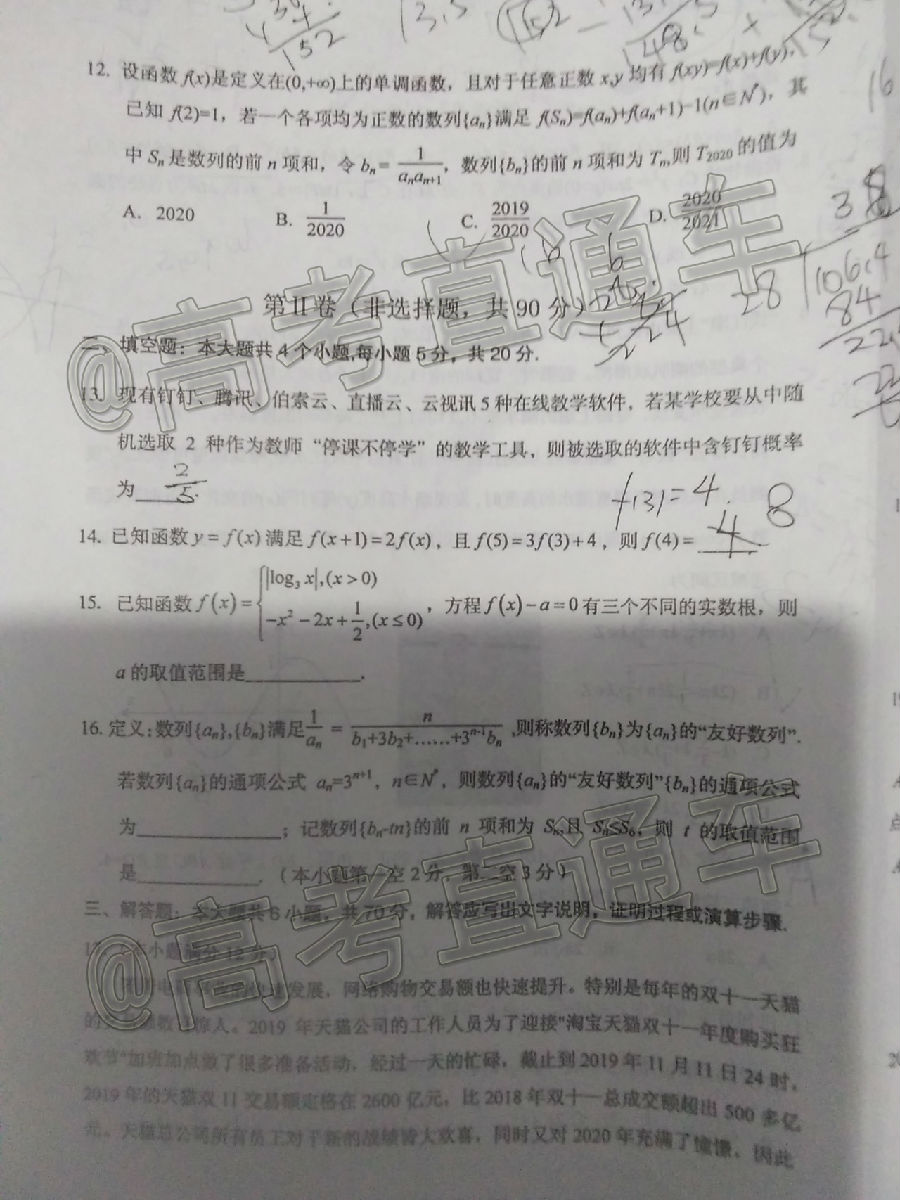 12. 设函数 f(x)是定义在(0,+∞)上的单调函数，且对于任意正数 x,y 均有 f(xy)=f(x)+f(y)，
已知 f(2)=1，若一个各项均为正数的数列{aₙ}满足 f(Sₙ)=f(aₙ)+f(aₙ+1)-1(n∈N*)，其
中 Sₙ 是数列的前 n 项和，令 bₙ= 1/(aₙaₙ₊₁)，数列{bₙ}的前 n 项和为 Tₙ,则 T₂₀₂₀ 的值为
A. 2020 B. 1/2020 C. 2019/2020 D. 2020/2021
第 II 卷（非选择题，共 90 分）
二、填空题：本大题共 4 个小题,每小题 5 分，共 20 分.
13. 现有钉钉、腾讯、伯索云、直播云、云视讯 5 种在线教学软件，若某学校要从中随
机选取 2 种作为教师“停课不停学”的教学工具，则被选取的软件中含钉钉概率
为 2/5
f(3)=4. 8
14. 已知函数 y=f(x)满足 f(x+1)=2f(x)，且 f(5)=3f(3)+4，则 f(4)= 4
15. 已知函数 f(x)={|log₃x|,(x>0) -x²-2x+1/2,(x≤0)，方程 f(x)-a=0 有三个不同的实数根，则
a 的取值范围是____.
16. 定义：数列{aₙ},{bₙ}满足 1/aₙ = n/(b₁+3b₂+……+3ⁿ⁻¹bₙ) ,则称数列{bₙ}为{aₙ}的“友好数列”.
若数列{aₙ}的通项公式 aₙ=3ⁿ⁺¹，n∈N*，则数列{aₙ}的“友好数列”{bₙ}的通项公式
为____；记数列{bₙ-tn}的前 n 项和为 Sₙ,且 Sₙ≤S₆，则 t 的取值范围
是____.（本小题第一空 2 分，第二空 3 分）
三、解答题：本大题共 6 小题，共 70 分，解答应写出文字说明，证明过程或演算步骤.
17.（本小题满分 12 分）
发展，网络购物交易额也快速提升。特别是每年的双十一天猫
惊人。2019 年天猫公司的工作人员为了迎接“淘宝天猫双十一年度购买狂
欢节”加班加点做了很多准备活动，经过一天的忙碌，截止到 2019 年 11 月 11 日 24 时，
2019 年的天猫双 11 交易额定格在 2600 亿元，比 2018 年双十一总成交额超出 500 多亿
元。天猫总公司所有员工对于新的战绩皆大欢喜，同时又对 2020 年充满了憧憬，因此
@高考直通车
@高考直通车
152
13.5
16
28
106.4
84
3.8
224